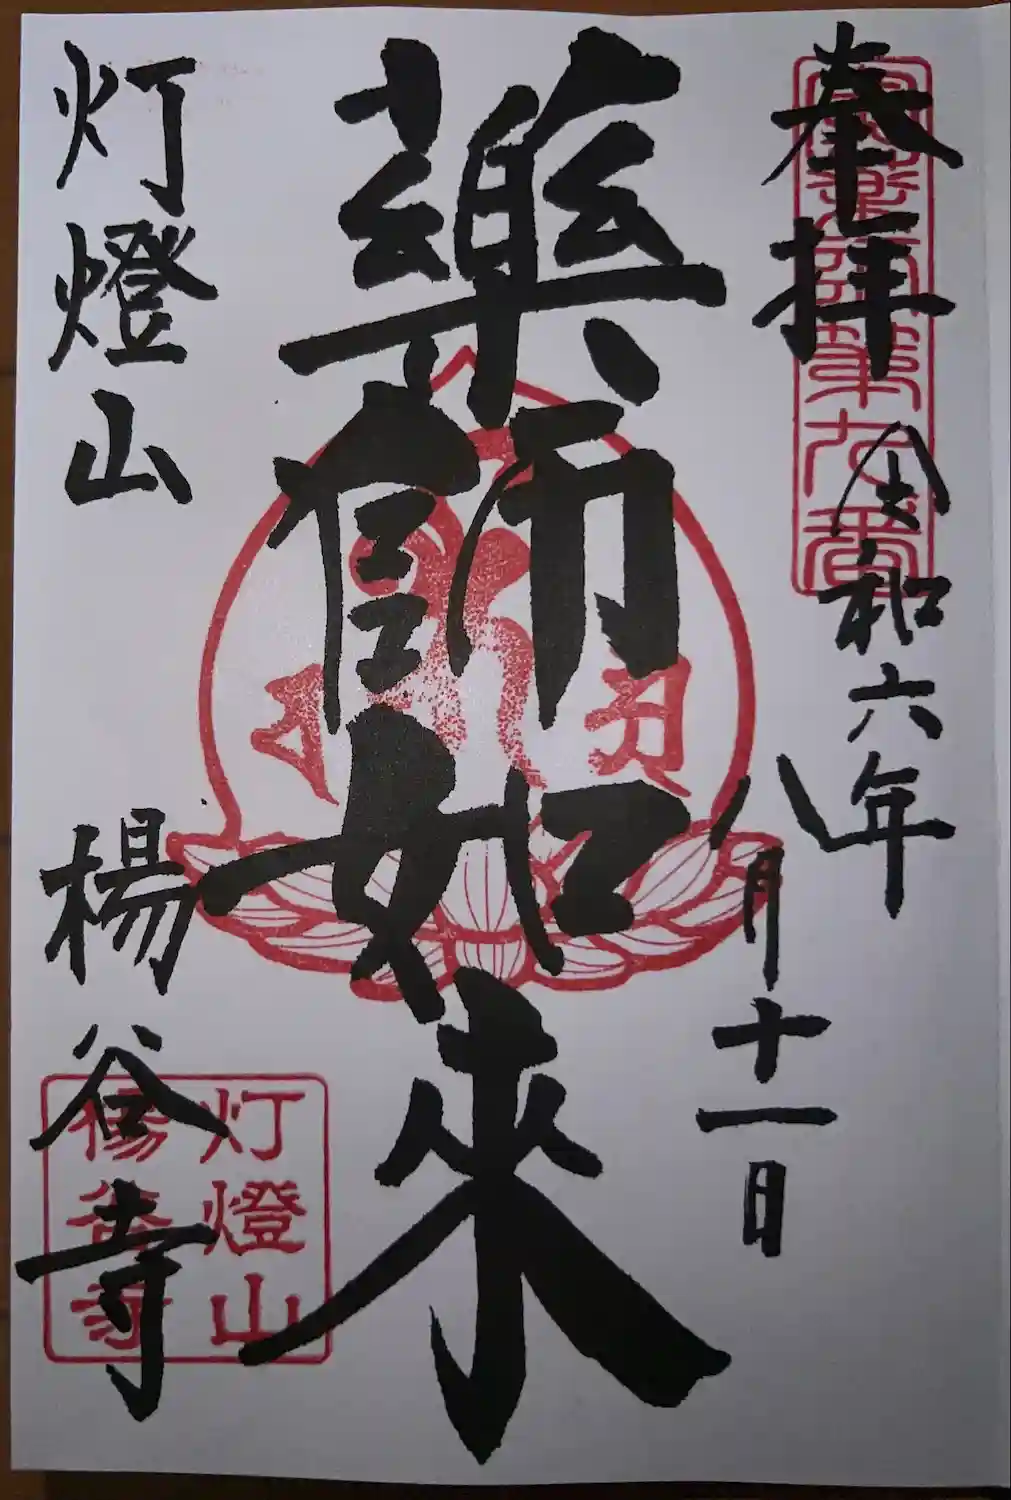 奉拝
令和六年
八月十一日
藥師如來
灯燈山
楊谷寺
灯燈山
楊谷寺